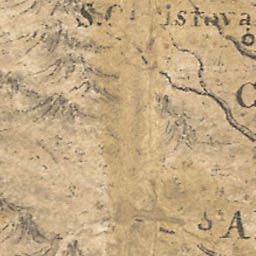 S. Christova
C
S A